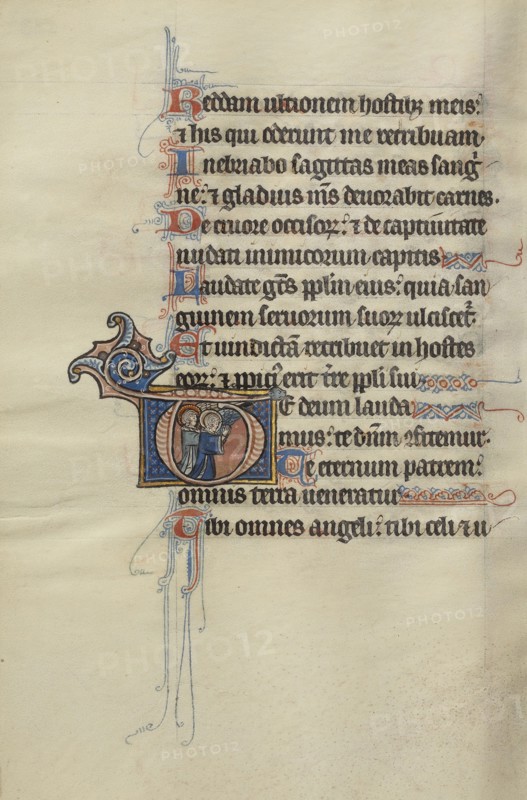 Reddam ultionem hostibꝫ meis:
⁊ his qui oderunt me retribuam.
Inebriabo sagittas meas sangͥ
ne: ⁊ gladius mͨs deuorabit carnes.
De cruore occisoꝝ: ⁊ de captiuitate
nudati inimicorum capitis
Laudate gͤs pplͫ eius: quia san
guinem seruorum suoꝝ ulciscet᷑:
Et uindictā retribuet in hostes
eoꝝ: ⁊ erit tͬre ppli sui
TE deum lauda
mus: te dn̄m ꝯfitemur.
Te eternum patrem:
omnis terra ueneratur
Tibi omnes angeli: tibi celi ⁊ u
PHOTO12